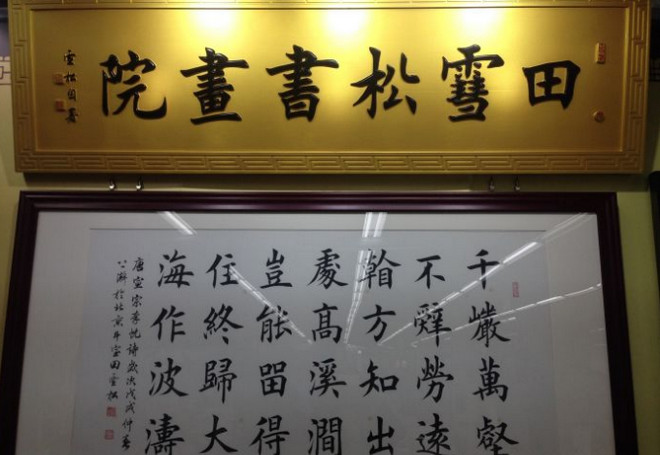 田雪松書畫院
雪松自署
千巖萬壑
不辭勞遠
看方知出
處高溪澗
豈能留得
住終歸大
海作波濤
唐宣宗李忱詩歲次戊戌仲春
澣於北京 室田雪松